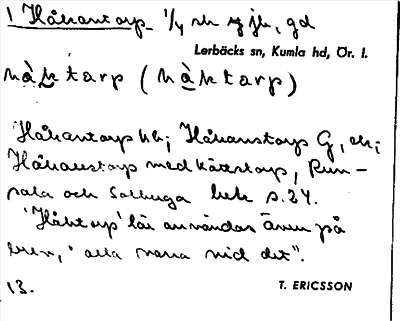 1 Håkantorp 1/4 sk og jb, gd
Lerbäcks sn, Kumla hd, Ör. l.
hàktarp (hàktarp)
Håkantorp kk; Håkanstorp G, ek;
Håkanstorp med Kättstorp, Run-
sala och Solhuga hsk s. 24.
'Håktorp' lär användas även på
even, "alla vana vid det".
13.
T. ERICSSON